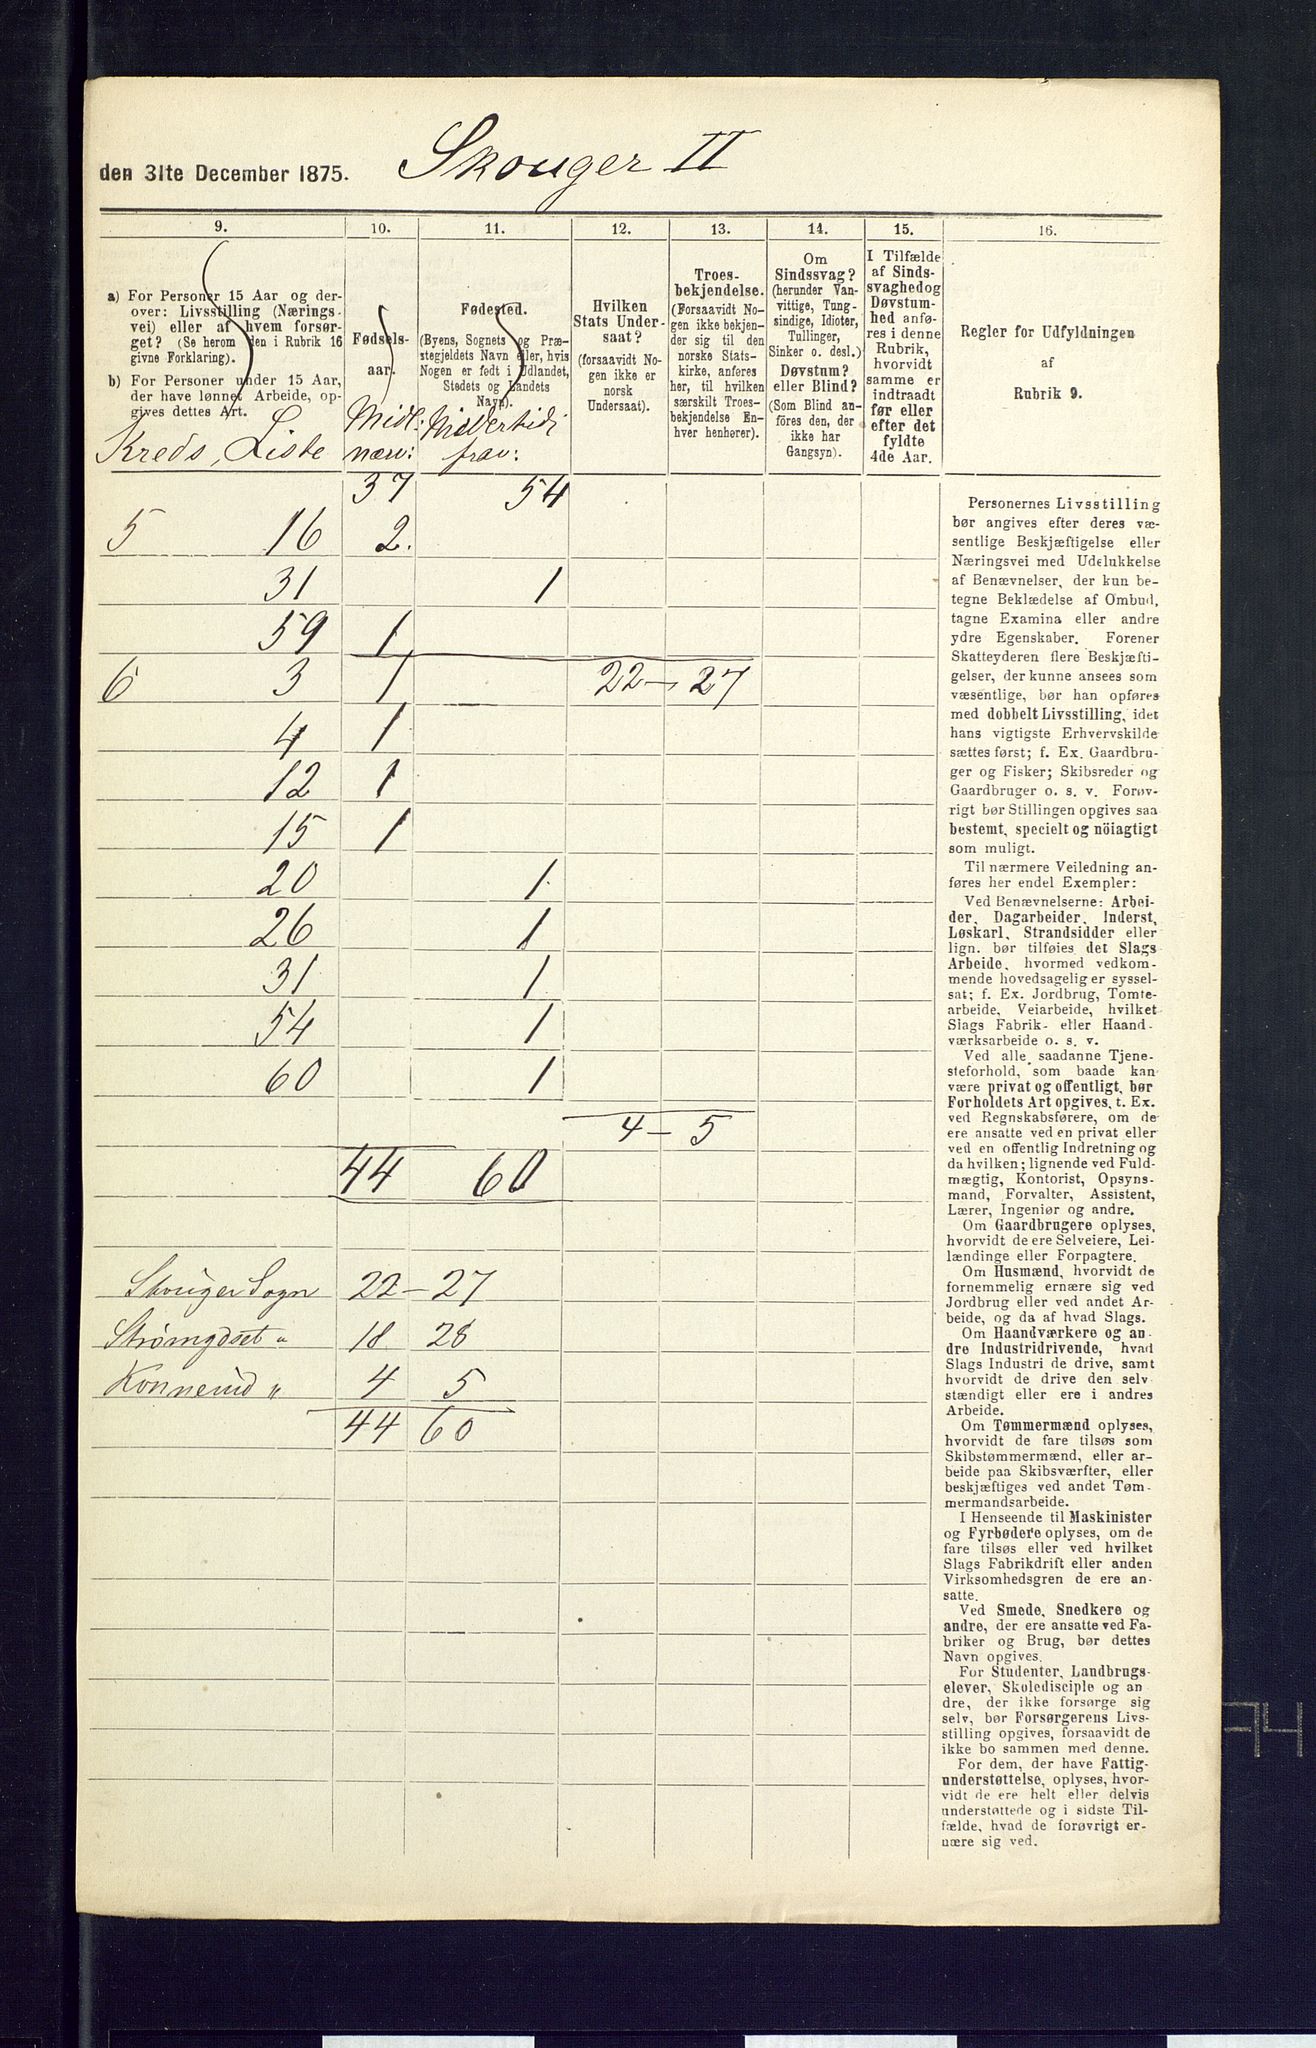 den 31te December 1875.
Skouger II
9.
10.
11.
12.
13.
14.
15.
16.
a) For Personer 15 Aar og der-
over: Livsstilling (Nærings-
vei) eller af hvem forsør-
get? (Se herom den i Rubrik 16
givne Forklaring).
b) For Personer under 15 Aar,
der have lønnet Arbeide, op-
gives dettes Art.
Kreds, Liste
Fødsels-
aar.
Midl:
nærv:
Fødested.
(Byens, Sognets og Præ-
stegjeldets Navn eller, hvis
Nogen er født i Udlandet,
Stedets og Landets
Navn).
Midlertidi
frav:
Hvilken
Stats Under-
saat?
(forsaavidt No-
gen ikke er
norsk
Undersaat).
Troes-
bekjendelse.
(Forsaavidt No-
gen ikke bekjen-
der sig til den
norske Stats-
kirke, anføres
her, til hvilken
særskilt Troes-
bekjendelse En-
hver henhører).
Om
Sindssvag?
(herunder Van-
vittige, Tung-
sindige, Idioter,
Tullinger,
Sinker o. desl.)
Døvstum?
eller Blind?
(Som Blind an-
føres den, der
ikke har
Gangsyn).
I Tilfælde
af Sinds-
svaghedog
Døvstum-
hed anfø-
res i denne
Rubrik,
hvorvidt
samme er
indtraadt
før eller
efter det
fyldte
4de Aar.
Regler for Udfyldningen
af
Rubrik 9.
37 54
5 16 2.
31 1
59 1
6 3 1 22 — 27
4 1
12 1
15 1
20 1
26 1
31 1
54 1
60 1
4 — 5
44 60
Skouger Sogn 22 — 27
Strømgdset " 18 28
Konnerud " 4 5
44 60
Personernes Livsstilling
bør angives efter deres væ-
sentlige Beskjæftigelse eller
Næringsvei med Udelukkelse
af Benævnelser, der kun be-
tegne Beklædelse af Ombud,
tagne Examina eller andre
ydre Egenskaber. Forener
Skatteyderen flere Beskjæfti-
gelser, der kunne ansees som
væsentlige, bør han opføres
med dobbelt Livsstilling, idet
hans vigtigste Erhvervskilde
sættes først; f. Ex. Gaardbru-
ger og Fisker; Skibsreder og
Gaardbruger o. s. v. Forøv-
rigt bør Stillingen opgives saa
bestemt, specielt og nöiagtigt
som muligt.
Til nærmere Veiledning an-
føres her endel Exempler:
Ved Benævnelserne: Arbei-
der, Dagarbeider, Inderst,
Løskarl, Strandsidder eller
lign. bør tilføies det Slags
Arbeide, hvormed vedkom-
mende hovedsagelig er syssel-
sat; f. Ex. Jordbrug, Tomte-
arbeide, Veiarbeide, hvilket
Slags Fabrik- eller Haand-
værksarbeide o. s. v.
Ved alle saadanne Tjene-
steforhold, som baade kan
være privat og offentligt, bør
Forholdets Art opgives, t. Ex.
ved Regnskabsførere, om de
ere ansatte ved en privat eller
ved en offentlig Indretning og
da hvilken; lignende ved Fuld-
mægtig, Kontorist, Opsyns-
mand, Forvalter, Assistent,
Lærer, Ingeniør og andre.
Om Gaardbrugere oplyses,
hvorvidt de ere Selveiere, Lei-
lændinge eller Forpagtere.
Om Husmænd, hvorvidt de
fornemmelig ernære sig ved
Jordbrug eller ved andet Ar-
beide, og da af hvad Slags.
Om Haandværkere og an
dre Industridrivende, hvad
Slags Industri de drive, samt
hvorvidt de drive den selv
stændigt eller ere i andres
Arbeide.
Om Tømmermænd oplyses,
hvorvidt de fare tilsøs som
Skibstømmermænd, eller ar-
beide paa Skibsværfter, eller
beskjæftiges ved andet Tøm-
mermandsarbeide.
I Henseende til Maskinister
og Fyrbødere oplyses, om de
fare tilsøs eller ved hvilket
Slags Fabrikdrift eller anden
Virksomhedsgren de ere an-
satte.
Ved Smede, Snedkere og
andre, der ere ansatte ved Fa-
briker og Brug, bør dettes
Navn opgives.
For Studenter, Landbrugs-
elever, Skoledisciple og an
dre, der ikke forsørge sig
selv, bør Forsørgerens Livs-
stilling opgives, forsaavidt de
ikke bo sammen med denne.
For dem, der have Fattig-
understøttelse, oplyses, hvor-
vidt de ere helt eller delvis
understøttede og i sidste Til-
fælde, hvad de forøvrigt er-
nære sig ved.